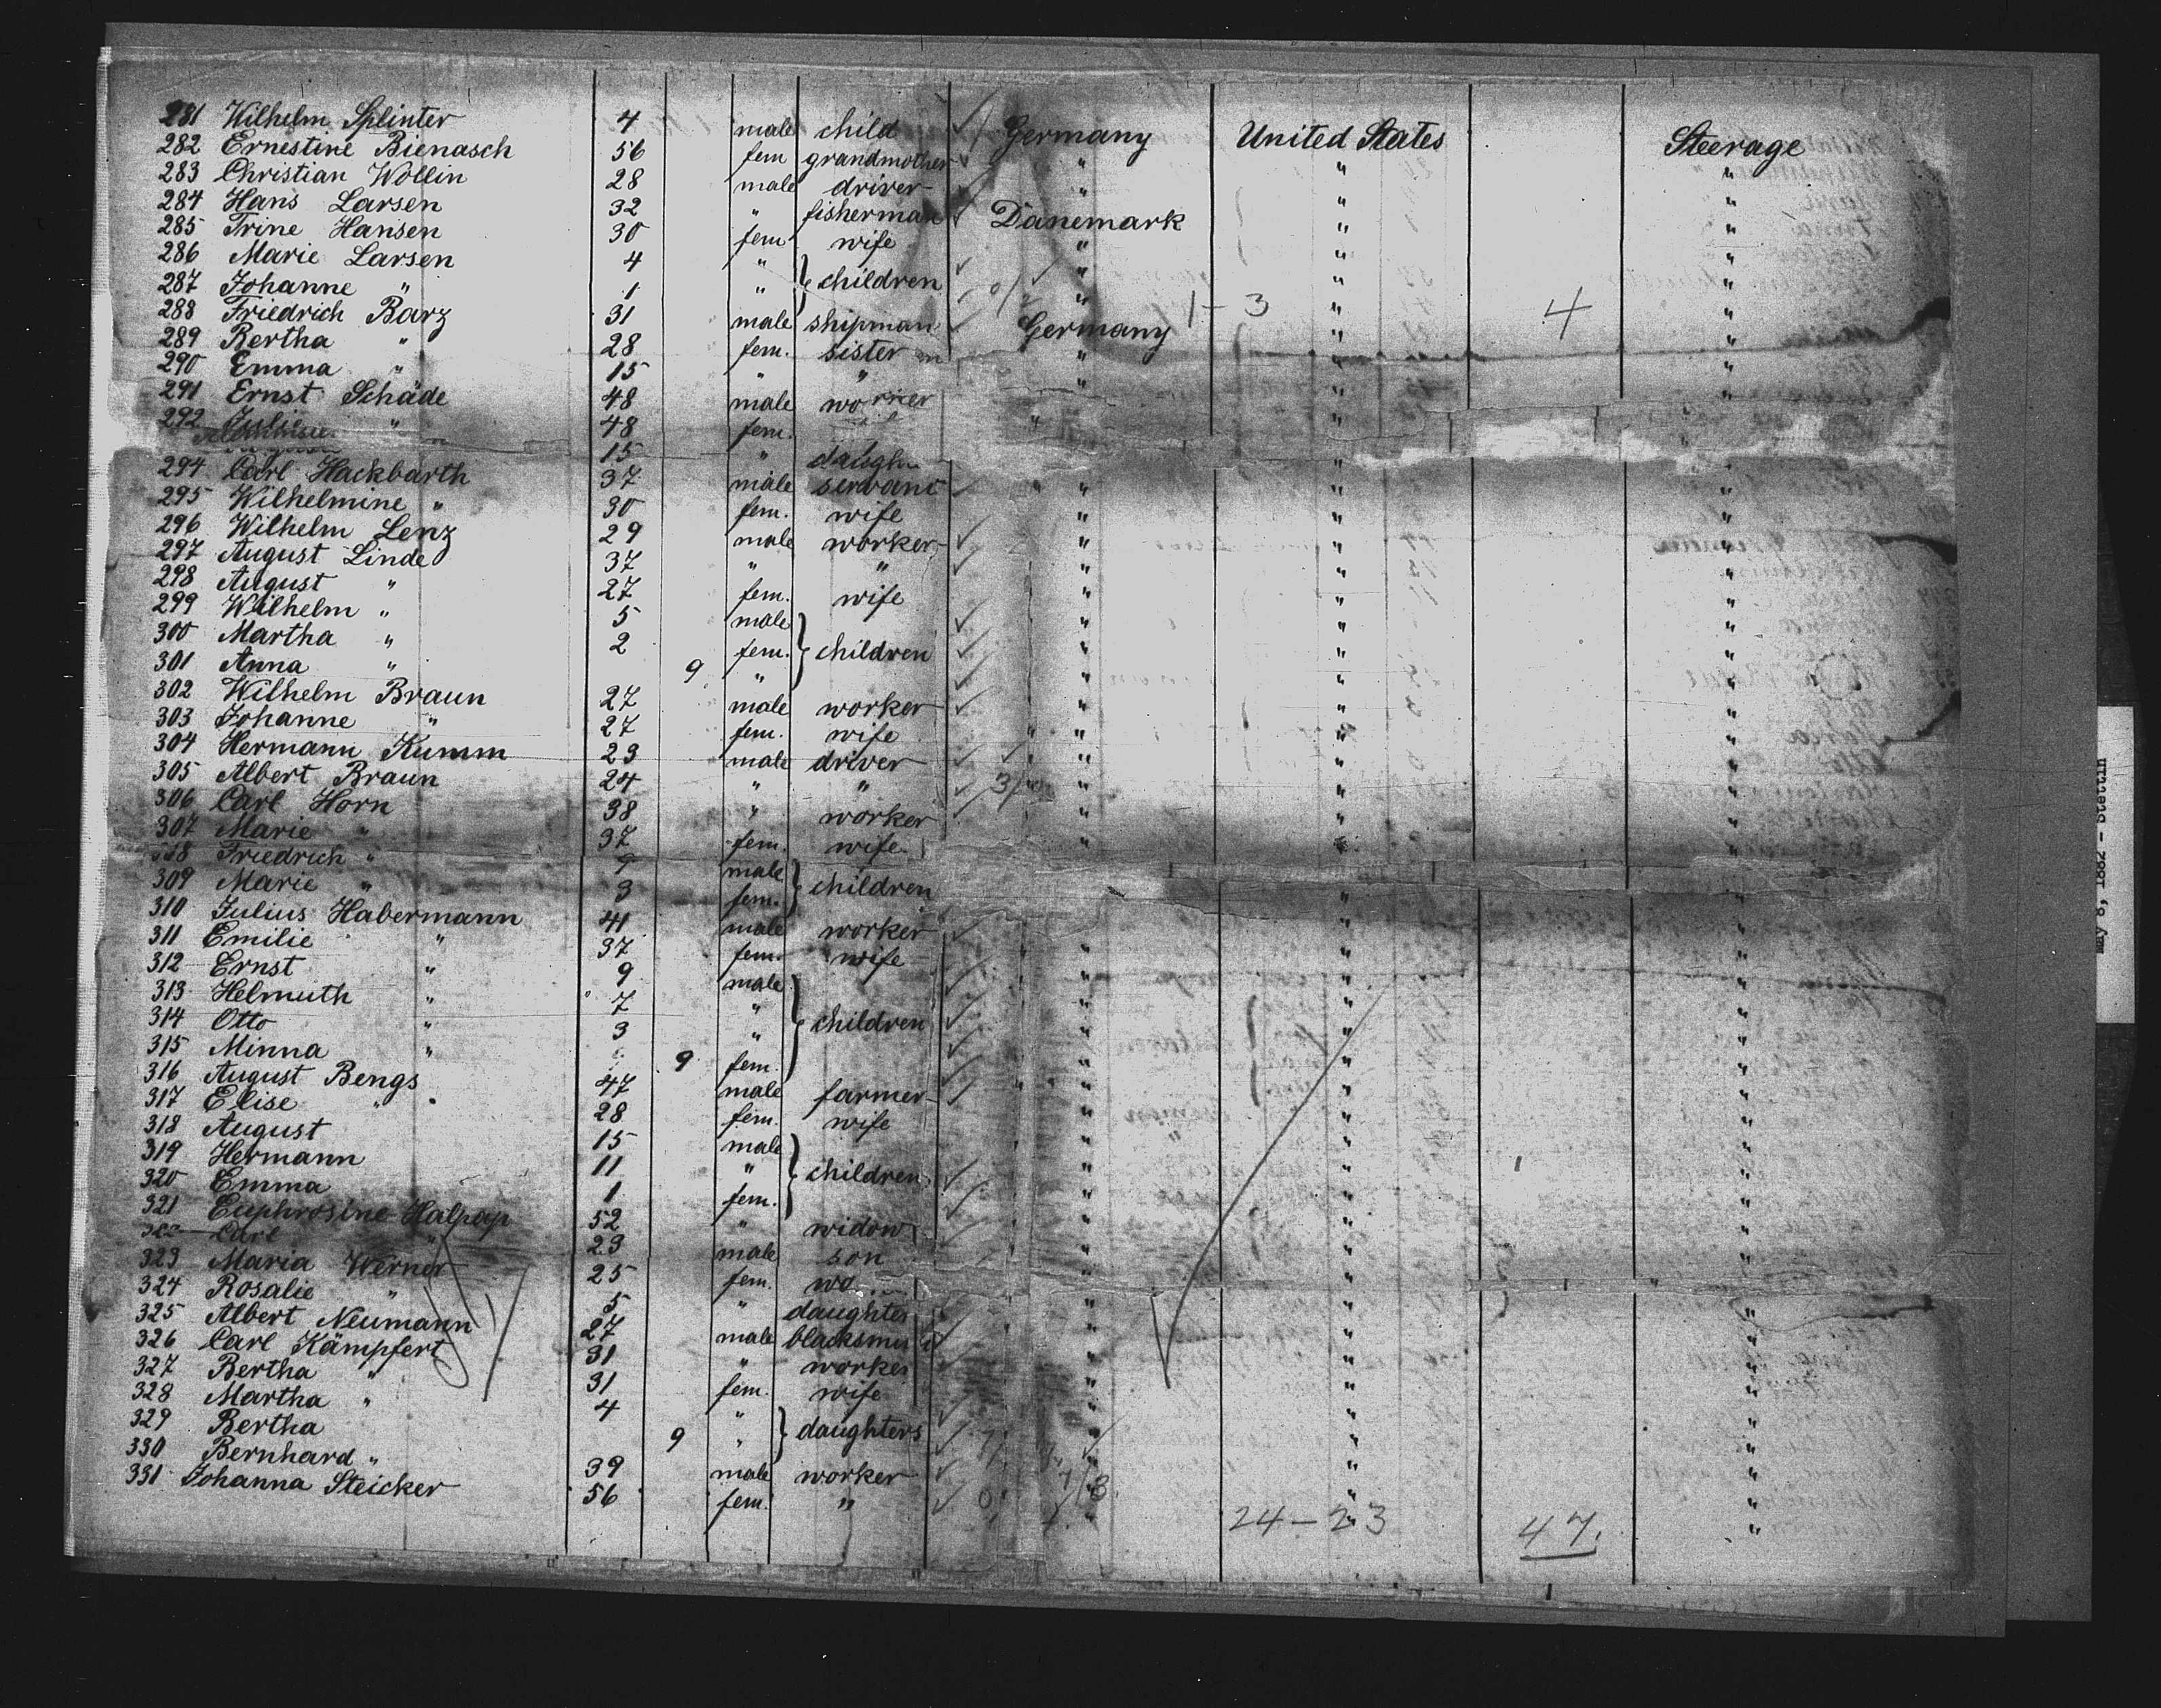 281 Wilhelm Splinter 4 male child Germany United States Steerage
282 Ernestine Bienasch 56 fem grandmother " " "
283 Christian Wollin 28 male driver " " "
284 Hans Larsen 32 " fisherman Danemark " "
285 Trine Hansen 30 fem wife " " "
286 Marie Larsen 4 " } children " " "
287 Johanne " 1 " " 1-3 " 4 "
288 Friedrich Barz 31 male shipman Germany " "
289 Bertha " 28 fem. sister " " "
290 Emma " 15 " " " " "
291 Ernst Schäde 48 male worker " " "
292 Julie " 48 fem.
15 " daugh
294 Carl Hackbarth 37 male servant " " "
295 Wilhelmine " 30 fem. wife " " "
296 Wilhelm Lenz 29 male worker " " "
297 August Linde 37 " " " " "
298 August " 27 fem. wife " " "
299 Wilhelm " 5 male } children " " "
300 Martha " 2 fem. " " "
301 Anna " 9 " " " "
302 Wilhelm Braun 27 male worker " " "
303 Johanne " 27 fem. wife " " "
304 Hermann Kumm 23 male driver " " "
305 Albert Braun 24 " " " " "
306 Carl Horn 38 " worker " " "
307 Marie " 37 fem. wife " " "
308 Friedrich " 9 male } children
309 Marie " 3 fem. " "
310 Julius Habermann 41 male worker " "
311 Emilie " 37 fem. wife " " "
312 Ernst " 9 male } children " " "
313 Helmuth " 7 " " " "
314 Otto " 3 " " " "
315 Minna " 9 fem. " " "
316 August Bengs 47 male farmer " " "
317 Elise " 28 fem. wife " " "
318 August 15 male } children " " "
319 Hermann 11 " " " "
320 Emma 1 fem. " " "
321 Euphrosine Halpap 52 " widow " " "
322 Carl " 23 male son " " "
323 Maria Werner 25 fem. wo " "
324 Rosalie " 5 " daughter " " "
325 Albert Neumann 27 male blacksmi " " "
326 Carl Kämpfert 31 " worker " " "
327 Bertha " 31 fem. wife " " "
328 Martha " 4 " } daughters " " "
329 Bertha 9 " " " "
330 Bernhard " 39 male worker " " "
331 Johanna Steicker 56 fem. " " " "
24-23 47.
May 8, 1882 - Stettin